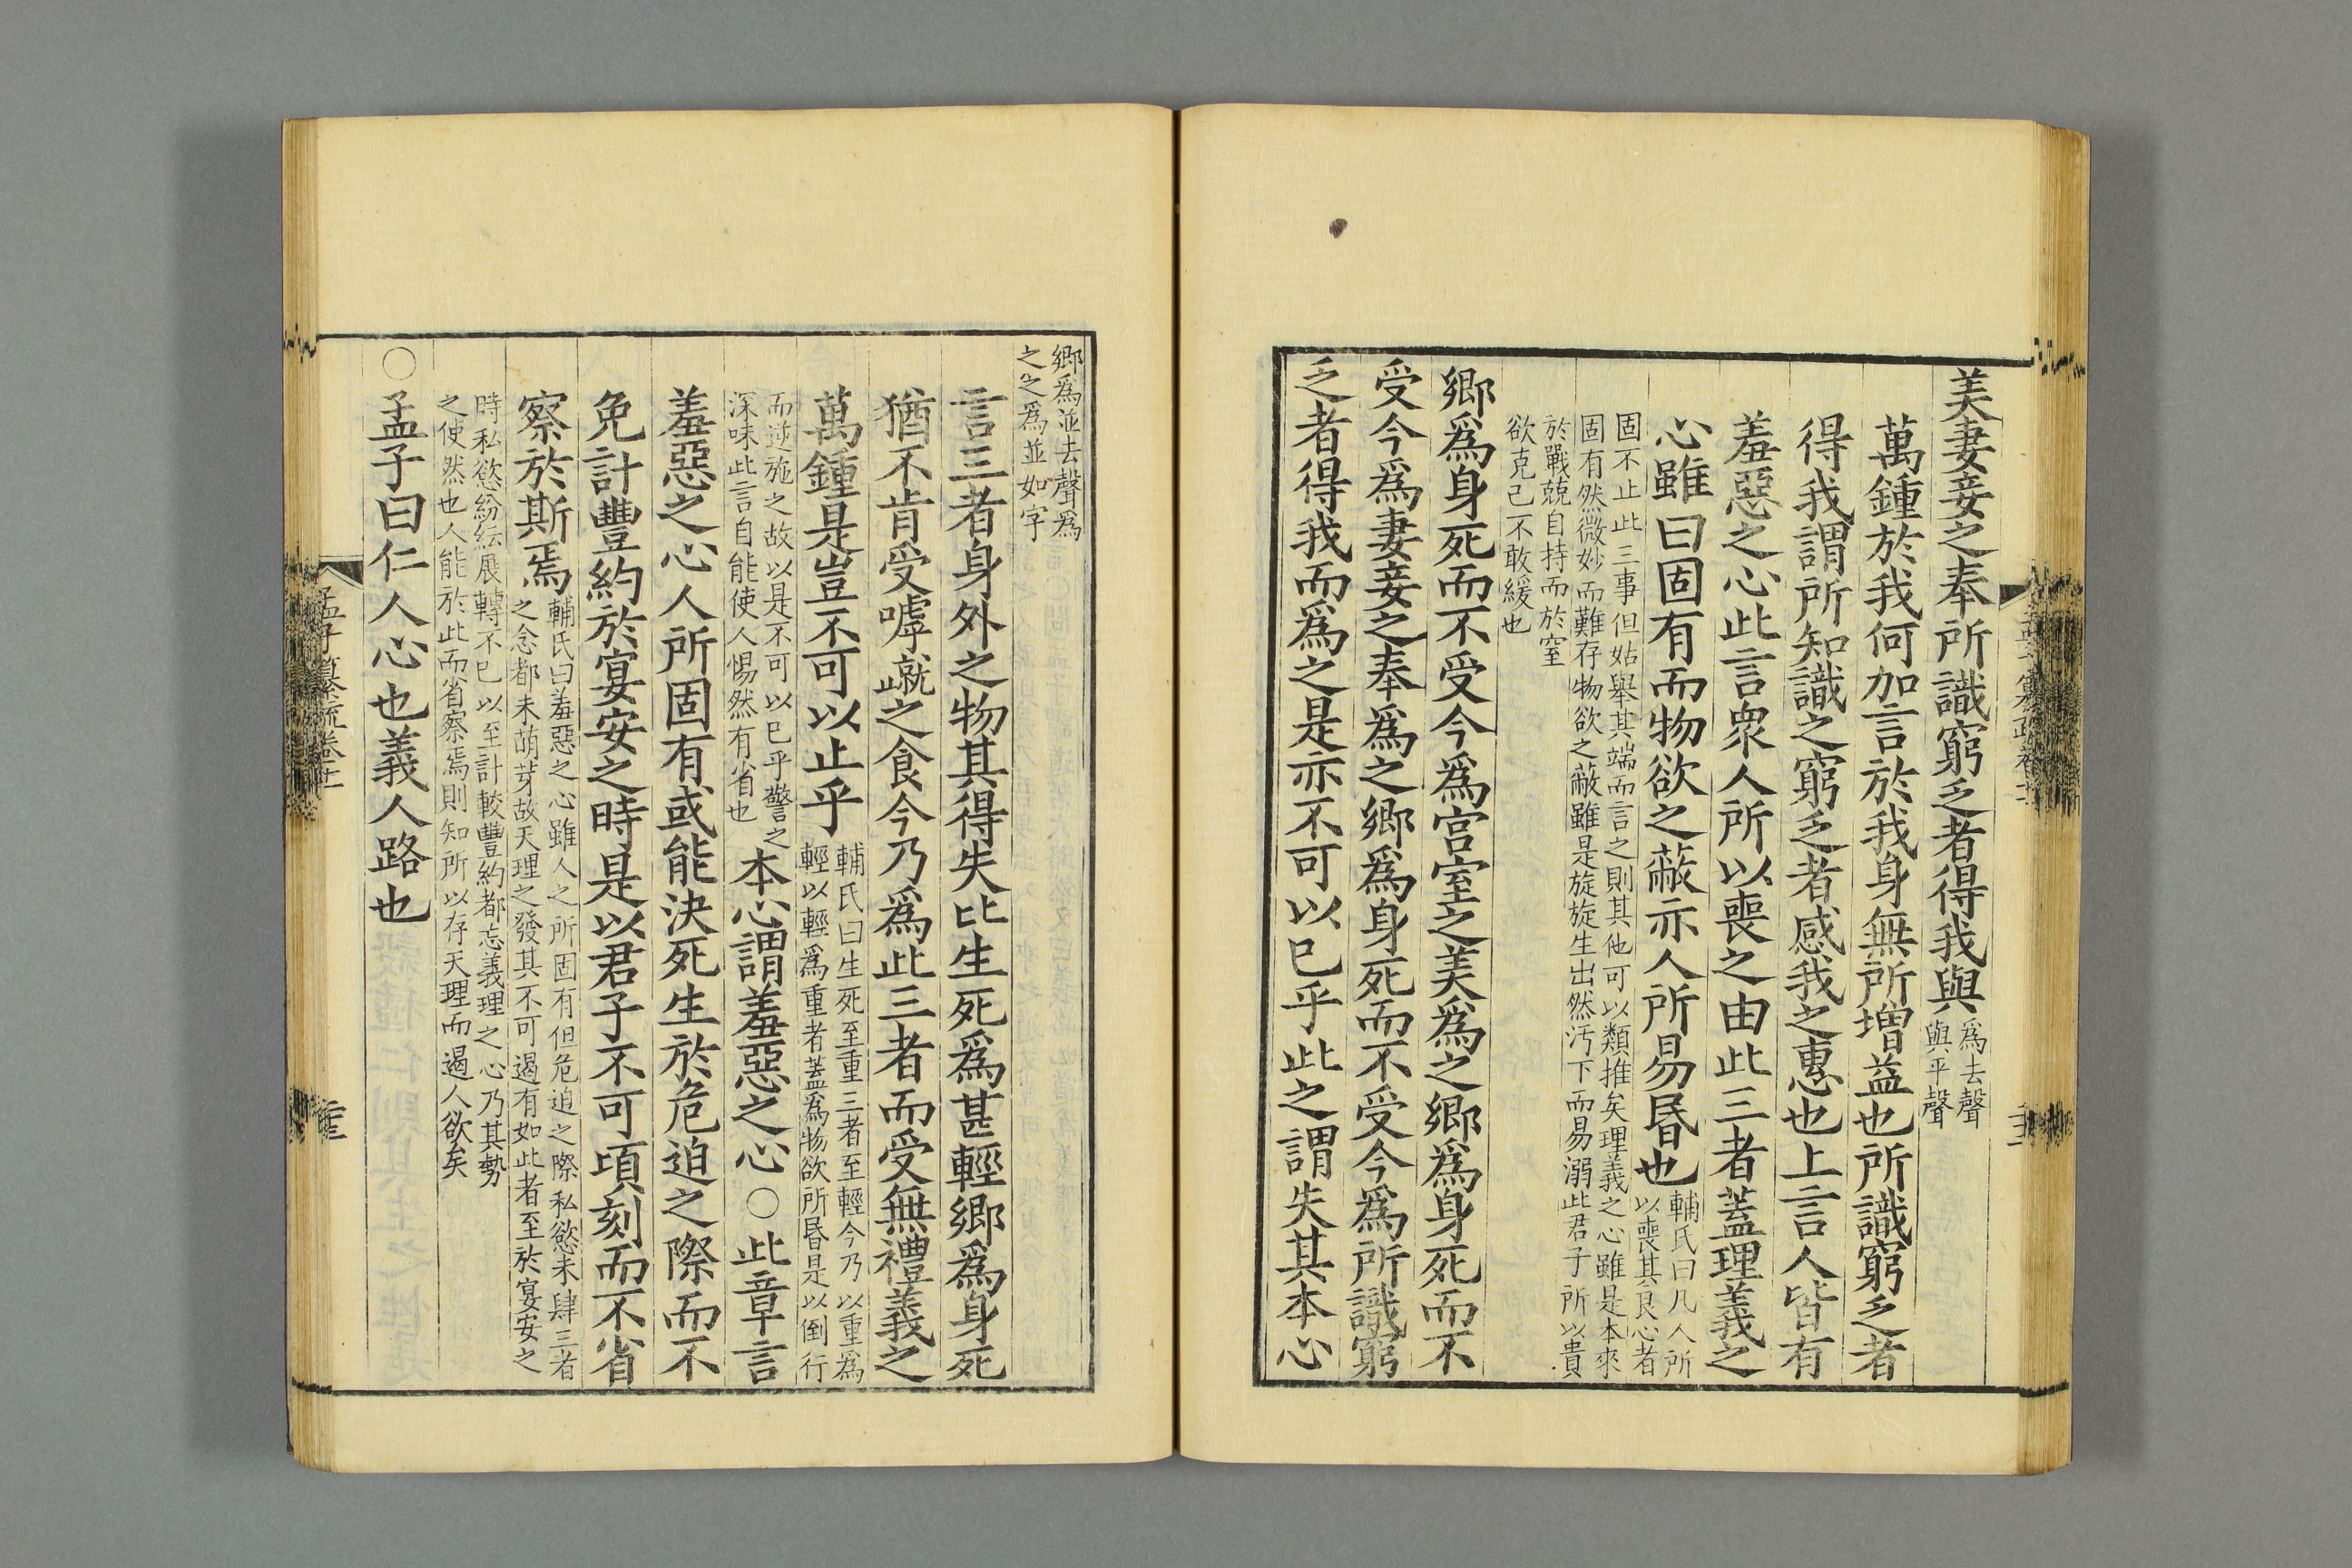 美妻妾之奉所識窮乏者得我與
爲去聲
與平聲
萬鍾於我何加言於我身無所增益也所識窮乏者
得我謂所知識之窮乏者感我之惠也上言人皆有
羞惡之心此言衆人所以喪之由此三者蓋理義之
心雖曰固有而物欲之蔽亦人所易昬也
輔氏曰凡人所
以喪其良心者
固不止此三事但姑舉其端而言之則其他可以類推矣理義之心雖是本來
固有然微妙而難存物欲之蔽雖是旋旋生出然汚下而易溺此君子所以貴
於戰兢自持而於窒
欲克己不敢緩也
鄉爲身死而不受今爲宮室之美爲之鄉爲身死而不
受今爲妻妾之奉爲之鄉爲身死而不受今爲所識窮
乏者得我而爲之是亦不可以已乎此之謂失其本心
鄉爲並去聲爲
之之爲並如字
言三者身外之物其得失比生死爲甚輕鄉爲身死
猶不肯受嘑蹴之食今乃爲此三者而受無禮義之
萬鍾是豈不可以止乎
輔氏曰生死至重三者至輕今乃以重爲
輕以輕爲重者蓋爲物欲所昬是以倒行
而逆施之故以是不可以已乎警之
深味此言自能使人惕然有省也
本心謂羞惡之心○此章言
羞惡之心人所固有或能決死生於危迫之際而不
免計豐約於宴安之時是以君子不可頃刻而不省
察於斯焉
輔氏曰羞惡之心雖人之所固有但危迫之際私慾未肆三者
之念都未萌芽故天理之發其不可遏有如此者至於宴安之
時私慾紛紜展轉不已以至計較豐約都忘義理之心乃其勢
之使然也人能於此而省察焉則知所以存天理而遏人欲矣
○孟子曰仁人心也義人路也
孟子纂疏卷十一